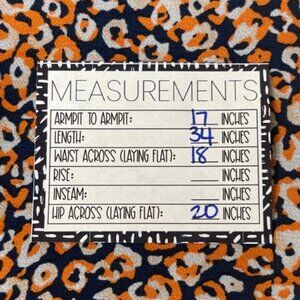 MEASUREMENTS
ARMPIT TO ARMPIT: 17 INCHES
LENGTH: 34 INCHES
WAIST ACROSS (LAYING FLAT): 18 INCHES
RISE: ___ INCHES
INSEAM: ___ INCHES
HIP ACROSS (LAYING FLAT): 20 INCHES